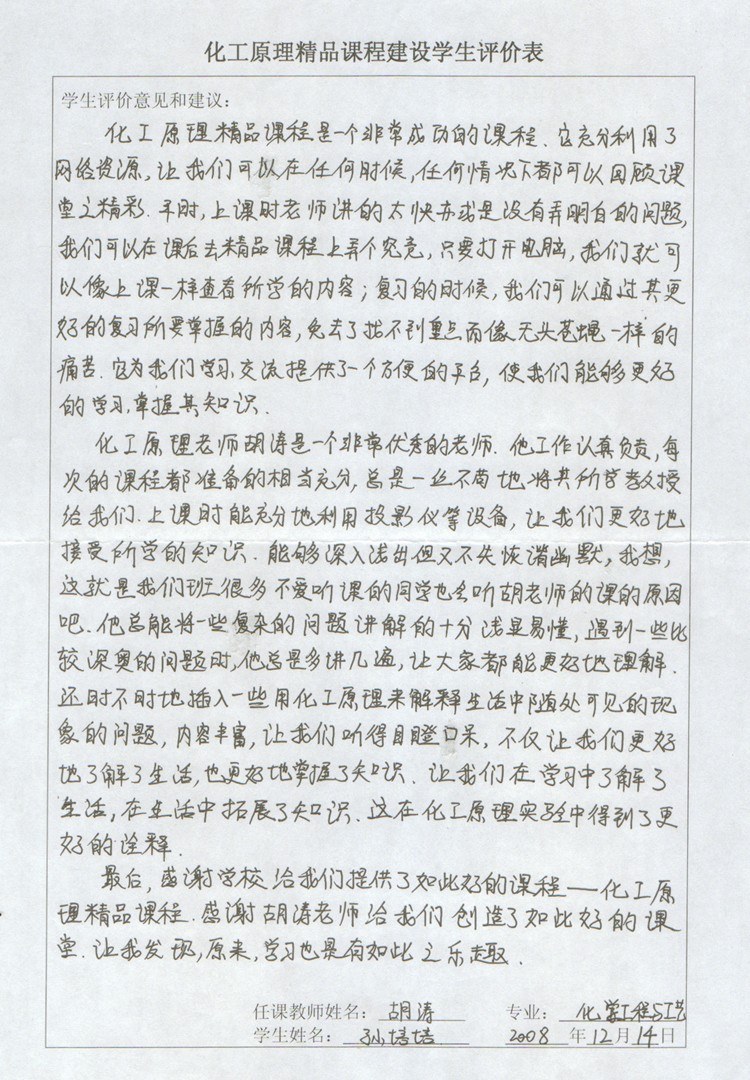 化工原理精品课程建设学生评价表
学生评价意见和建议：
化工原理精品课程是一个非常成功的课程.它充分利用了
网络资源,让我们可以在任何时候,任何情况下都可以回顾课
堂之精彩.平时,上课时老师讲的太快亦或是没有弄明白的问题,
我们可以在课后去精品课程上弄个究竟,只要打开电脑,我们就可
以像上课一样查看所学的内容;复习的时候,我们可以通过其更
好的复习所要掌握的内容,免去了找不到重点而像无头苍蝇一样的
痛苦.它为我们学习,交流提供了一个方便的平台,使我们能够更好
的学习,掌握其知识.
化工原理老师胡涛是一个非常优秀的老师.他工作认真负责,每
次的课程都准备的相当充分,总是一丝不苟地将其所学教授
给我们.上课时能充分地利用投影仪等设备,让我们更好地
接受所学的知识.能够深入浅出但又不失诙谐幽默,我想,
这就是我们班很多不爱听课的同学也会听胡老师的课的原因
吧.他总能将一些复杂的问题讲解的十分浅显易懂,遇到一些比
较深奥的问题时,他总是多讲几遍,让大家都能更好地理解.
还时不时地插入一些用化工原理来解释生活中随处可见的现
象的问题,内容丰富,让我们听得目瞪口呆,不仅让我们更好
地了解了生活,也更好地掌握了知识.让我们在学习中了解了
生活,在生活中拓展了知识.这在化工原理实验中得到了更
好的诠释.
最后,感谢学校给我们提供了如此好的课程——化工原
理精品课程.感谢胡涛老师给我们创造了如此好的课
堂.让我发现,原来,学习也是有如此之乐趣.
任课教师姓名：胡涛 专业：化学工程与工艺
学生姓名：孙培培 2008年12月14日